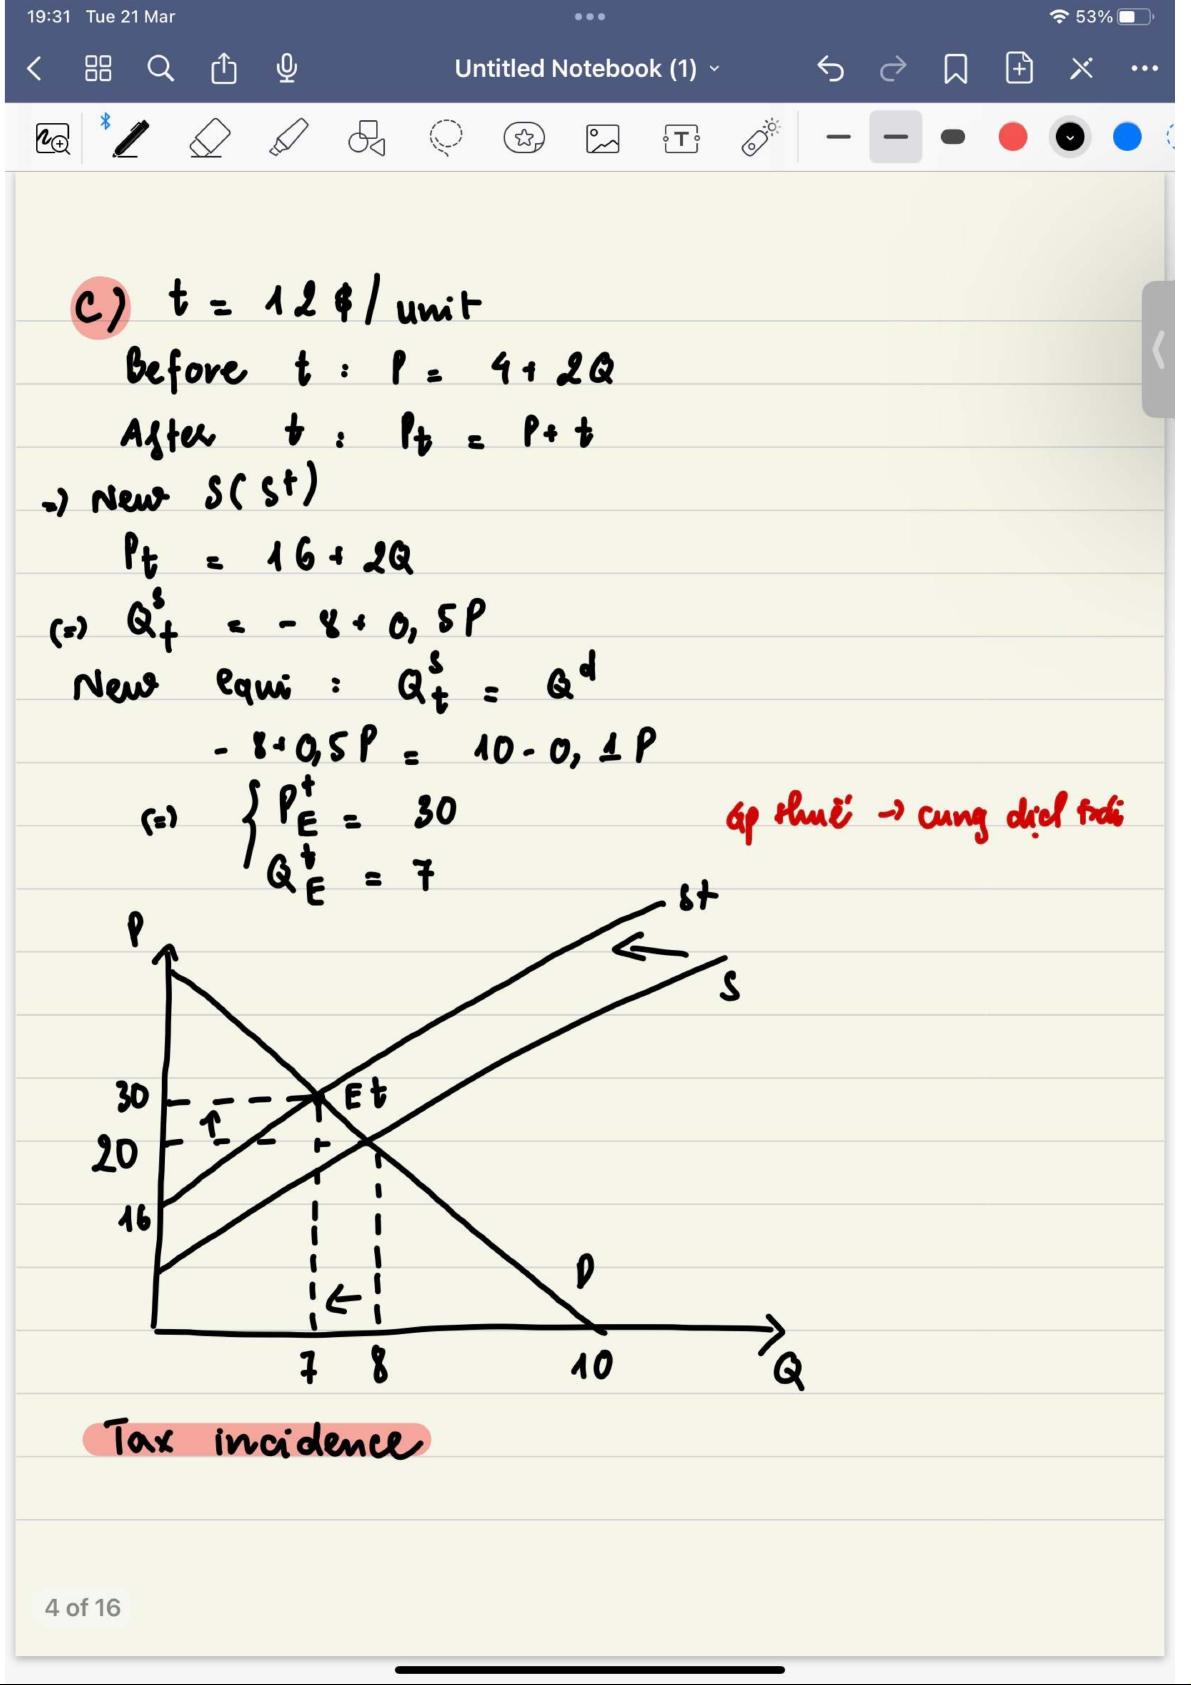 19:31 Tue 21 Mar
53%
Untitled Notebook (1)
T
c) t = 12 $ / unit
Before t : P = 4 + 2Q
After t : Pt = P + t
=) New S ( St )
Pt = 16 + 2Q
(=) Qst = - 8 + 0,5P
New equi : Qst = Qd
- 8 + 0,5P = 10 - 0,1P
(=) { PtE = 30
QtE = 7
áp thuế -> cung dịch trái
P
St
S
30
Et
20
16
D
7 8 10 Q
Tax incidence
4 of 16